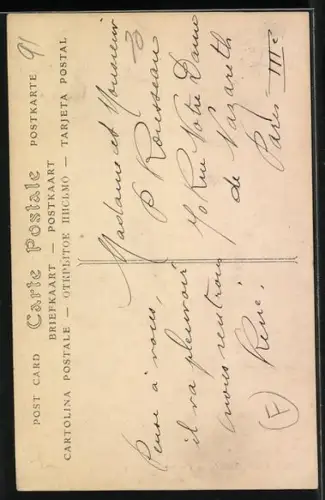 POST CARD Carte Postale POSTKARTE 91
BRIEFKAART — POSTKAART
CARTOLINA POSTALE — ОТКРЫТОЕ ПИСЬМО — TARJETA POSTAL
Pense à vous,
il va pleuvoir
nous rentrons
René.
F
Madame et Monsieur
P Rousseau
70 Rue Notre Dame
de Nazareth
Paris IIIe